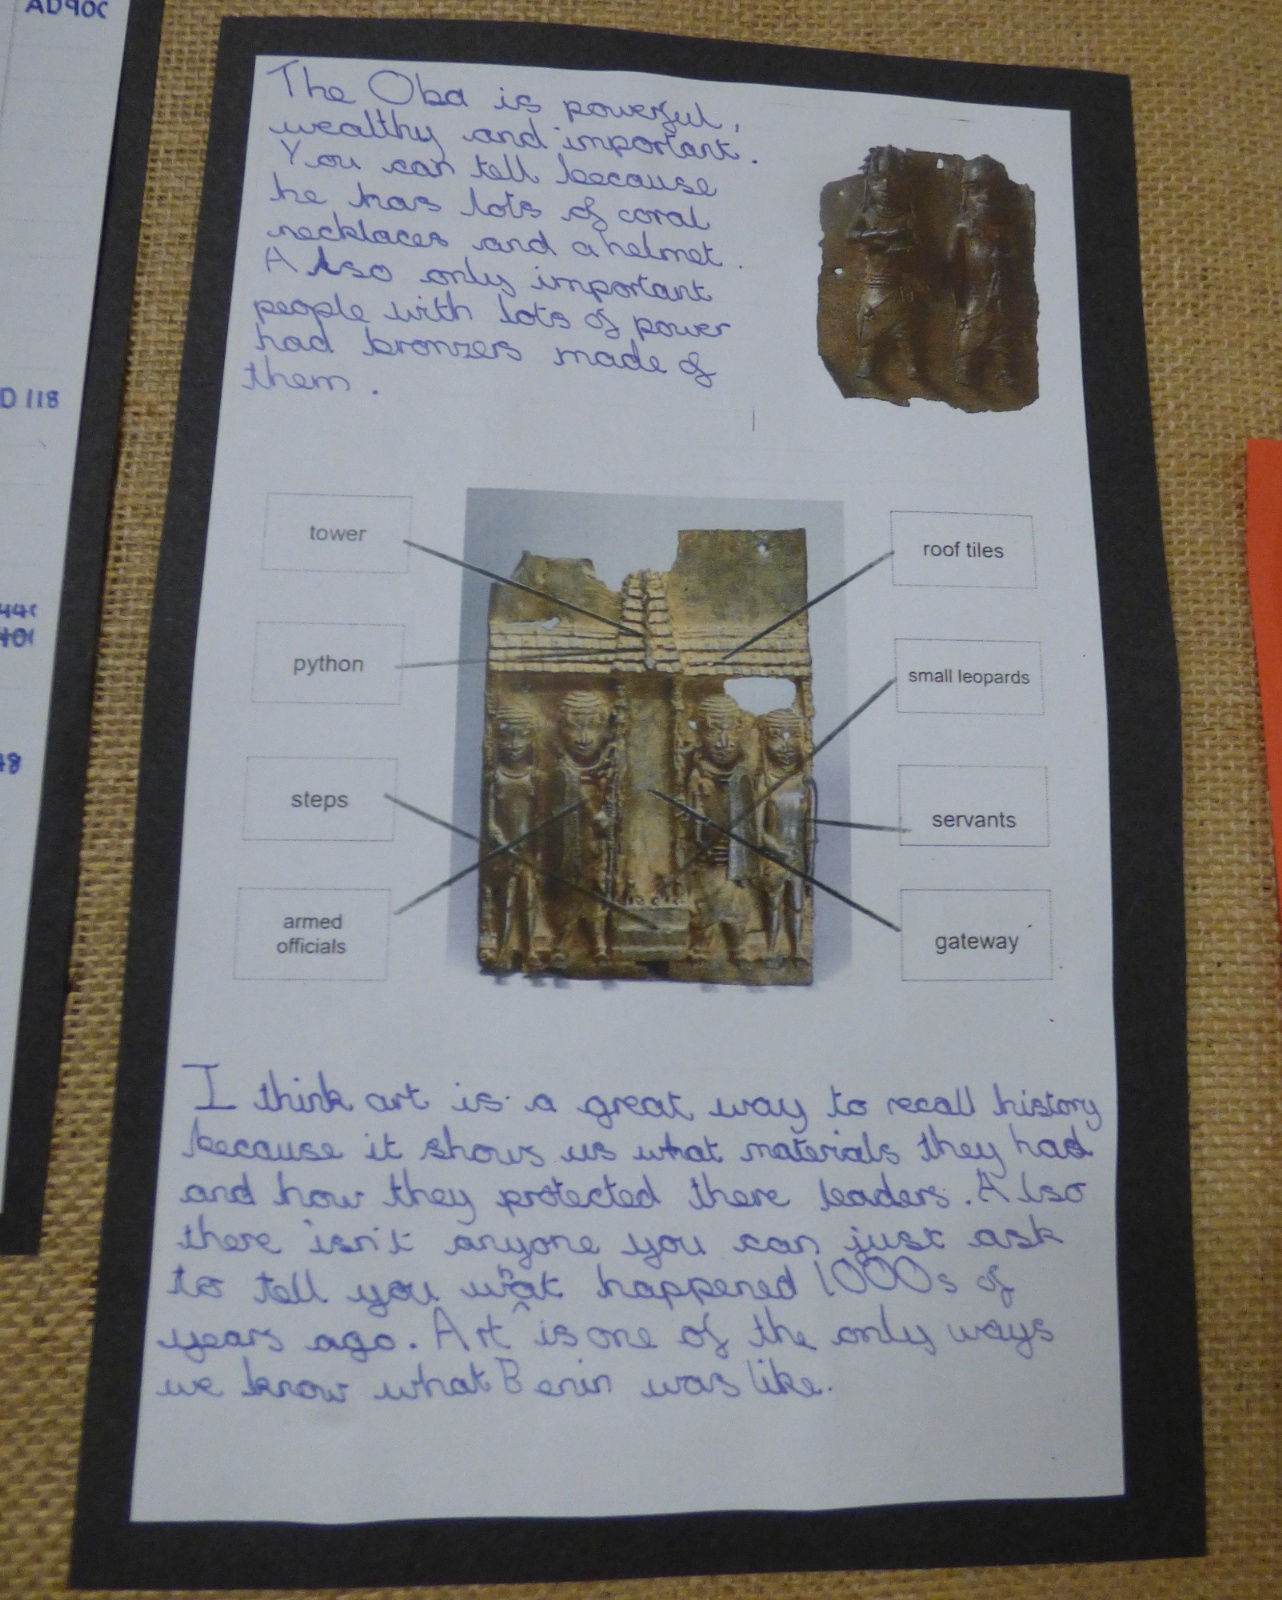 AD90C
D 118
44(
40(
48
The Oba is powerful,
wealthy and important.
You can tell because
he has lots of coral
necklaces and a helmet.
Also only important
people with lots of power
had bronzers made of
them.
tower
python
steps
armed
officials
roof tiles
small leopards
servants
gateway
I think art is a great way to recall history
because it shows us what materials they had
and how they protected there leaders. Also
there isn't anyone you can just ask
to tell you what happened 1000s of
years ago. Art is one of the only ways
we know what Benin was like.